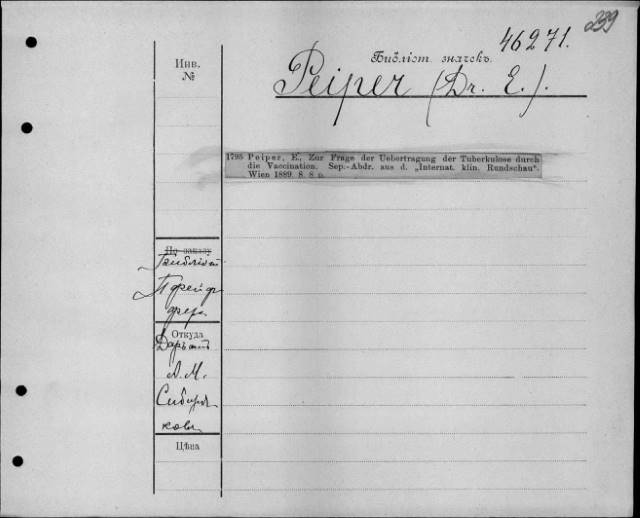 239
46271.
Библіот. значекъ.
Инв.
№
Peiper (Dr. E.).
1795 Peiper, E., Zur Frage der Uebertragung der Tuberkulose durch
die Vaccination. Sep.-Abdr. aus d. „Internat. klin. Rundschau“.
Wien 1889. 8. 8 p.
По заказу
Библіот
Пфейф
фера
Откуда
Даръ отъ
А. М.
Сибиря
кова
Цѣна